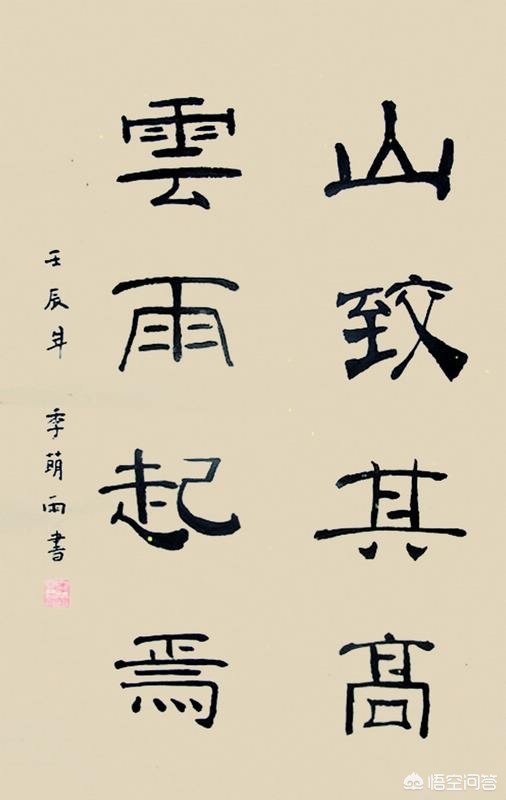 山致其高
雲雨起焉
壬辰年 季萌雨書
悟空问答